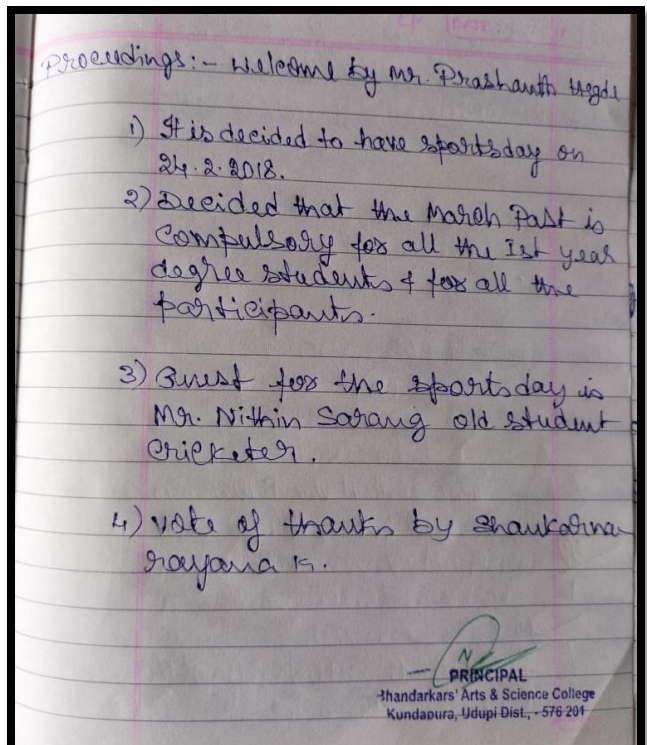 DATE:
Proceedings:- Welcome by Mr. Prashanth Hegde
1) It is decided to have sportsday on
24.2.2018.
2) Decided that the March Past is
compulsory for all the Ist year
degree students & for all the
participants.
3) Guest for the sportsday is
Mr. Nithin Sarang old student
cricketer.
4) vote of thanks by Shankarna-
rayana K.
PRINCIPAL
Bhandarkars' Arts & Science College
Kundapura, Udupi Dist., - 576 201